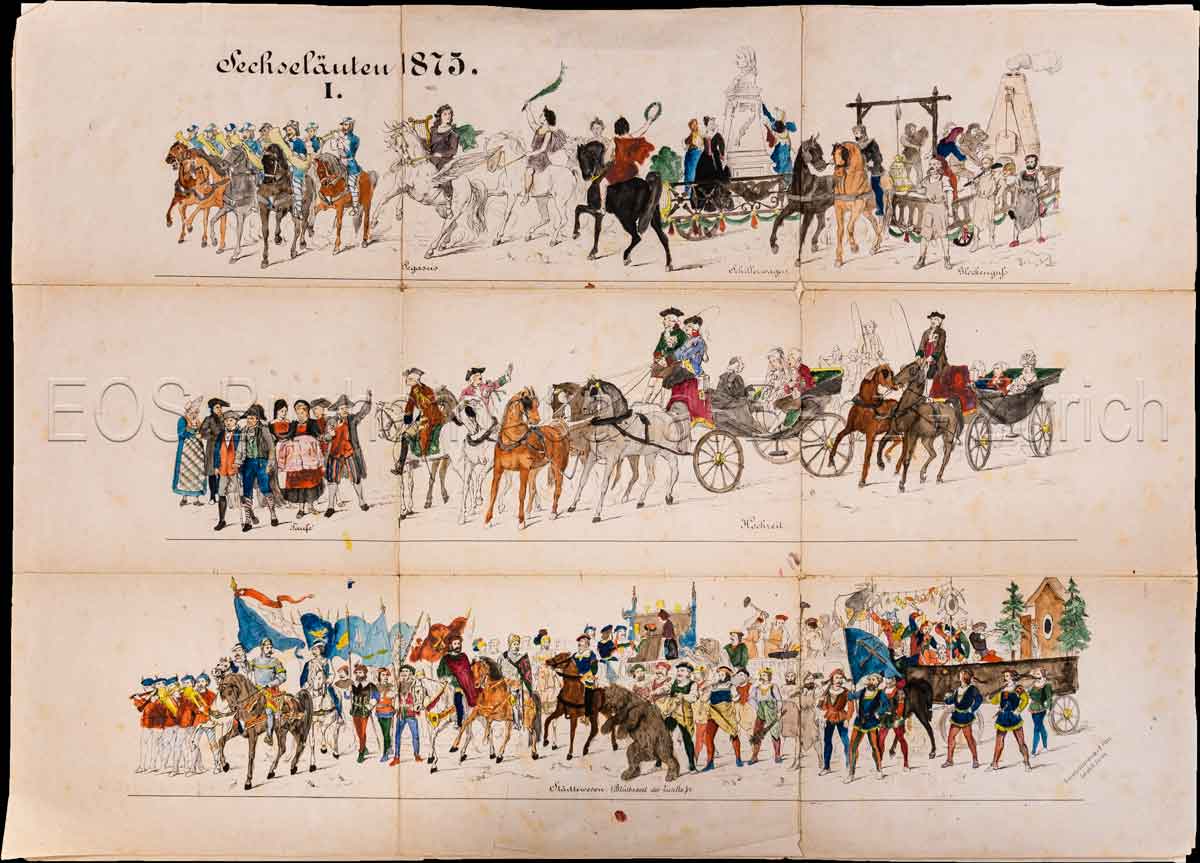 Sechseläuten 1875.
I.
Pegasus
Schillerwagen
Glockenguß
EOS Buch
Taufe
Hochzeit
Städtewesen. (Blüthezeit der Zünfte.)